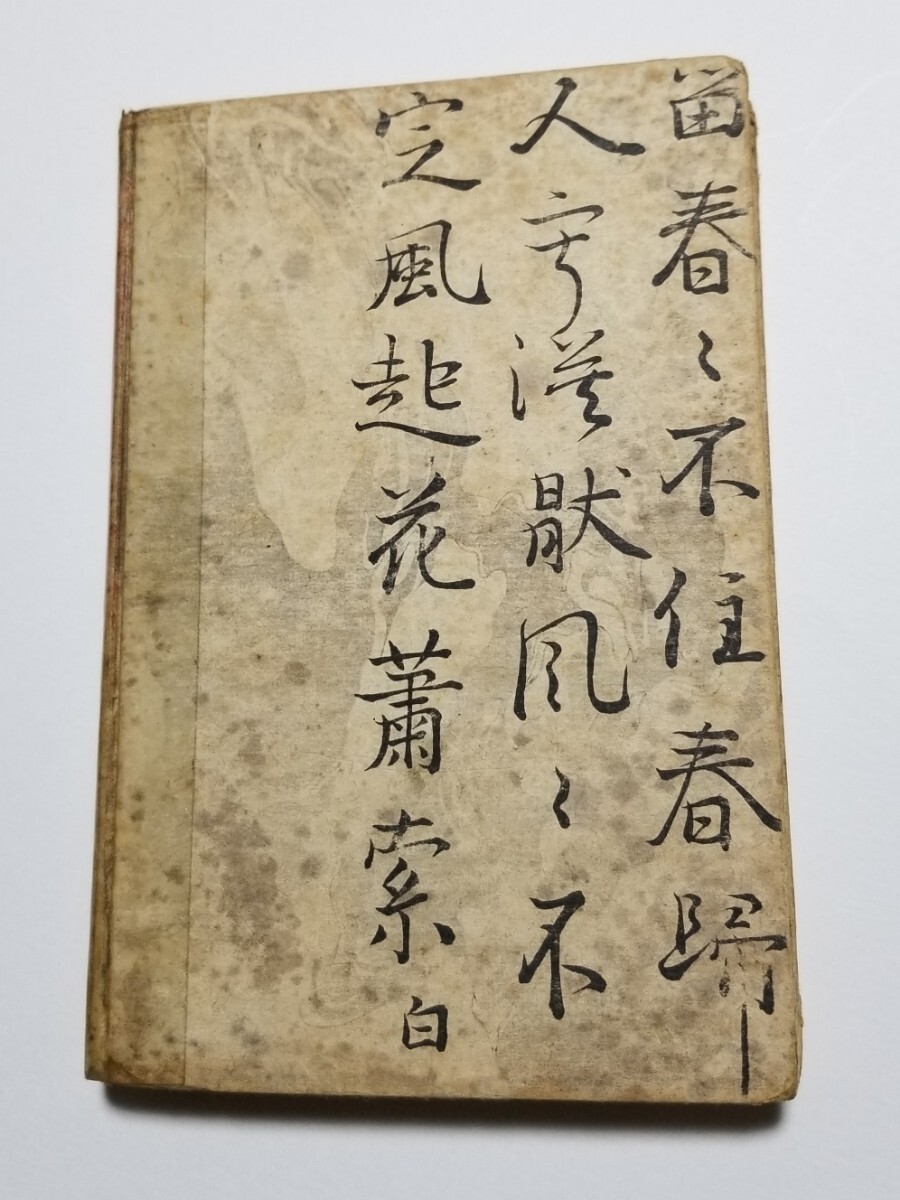 留春〻不住春歸
人寂漠猒風〻不
定風起花蕭索 白